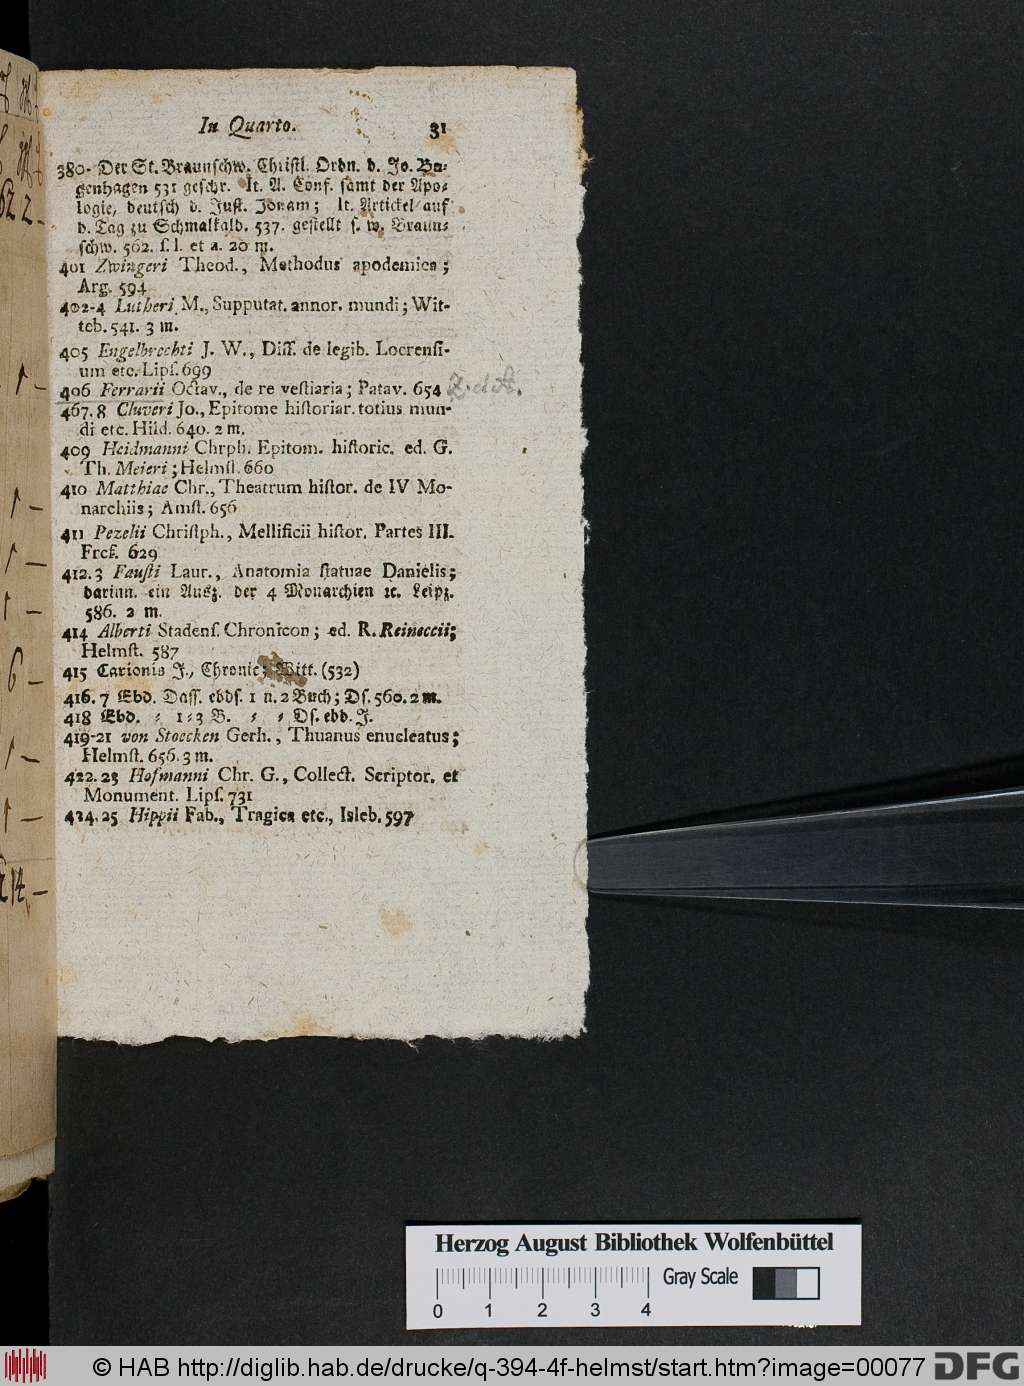 In Quarto. 31
380- Der St. Braunschw. Christl. Ordn. d. Jo. Bu-
genhagen 531 geschr. It. A. Conf. samt der Apo-
logie, deutsch d. Just. Jonam; It. Artickel auf
d. Tag zu Schmalkald. 537. gestellt s. w. Braun-
schw. 562. s. l. et a. 20 m.
401 Zwingeri Theod., Methodus apodemica;
Arg. 594
402-4 Lutheri M., Supputat. annor. mundi; Wit-
teb. 541. 3 m.
405 Engelbrechti J. W., Diss. de legib. Locrensi-
um etc. Lips. 699
406 Ferrarii Octav., de re vestiaria; Patav. 654
467.8 Cluveri Jo., Epitome historiar. totius mun-
di etc. Hild. 640. 2 m.
409 Heidmanni Chrph. Epitom. historic. ed. G.
Th. Meieri; Helmst. 660
410 Matthiae Chr., Theatrum histor. de IV Mo-
narchiis; Amst. 656
411 Pezelii Christph., Mellificii histor. Partes III.
Frcf. 629
412.3 Fausti Laur., Anatomia statuae Danielis;
darinn. ein Ausz. der 4 Monarchien ꝛc. Leipz.
586. 2 m.
414 Alberti Stadens. Chronicon; ed. R. Reineccii;
Helmst. 587
415 Carionis J., Chronic; Witt. (532)
416.7 Ebd. Dass. ebds. 1 u. 2 Buch; Ds. 560. 2 m.
418 Ebd. - 1-3 B. - - Ds. ebd. J.
419-21 von Stoecken Gerh., Thuanus enucleatus;
Helmst. 656. 3 m.
422.23 Hofmanni Chr. G., Collect. Scriptor. et
Monument. Lips. 731
424.25 Hippii Fab., Tragica etc., Isleb. 597
1 –
1 –
1 –
1 –
6 –
1 –
1 –
14 –
Herzog August Bibliothek Wolfenbüttel
0 1 2 3 4 Gray Scale
© HAB http://diglib.hab.de/drucke/q-394-4f-helmst/start.htm?image=00077 DFG